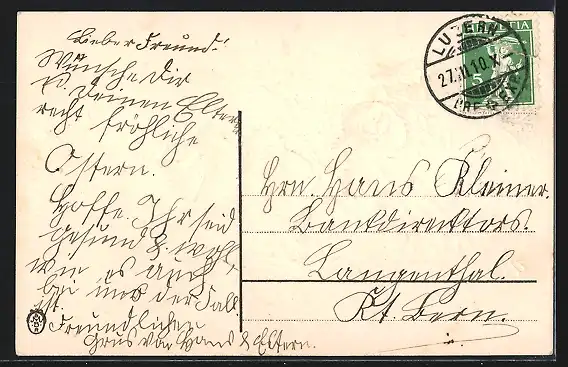 Lieber Freund!
Wünsche Dir
u. Deinen Eltern
recht fröhliche
Ostern.
Hoffe Ihr seid
gesund & wohl,
wie es auch
bei uns der Fall
ist.
Freundlichen
Grus von Hans & Eltern.
HELVETIA
5
LUZERN
27.III.10.X
Hrn. Hans Kleiner.
Bankdirektors.
Langenthal.
Kt. Bern.